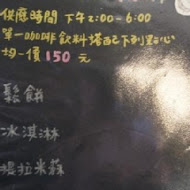 供應時間 下午2:00-6:00
單一咖啡飲料搭配下列點心
均一價 150 元
鬆餅
冰淇淋
提拉米蘇